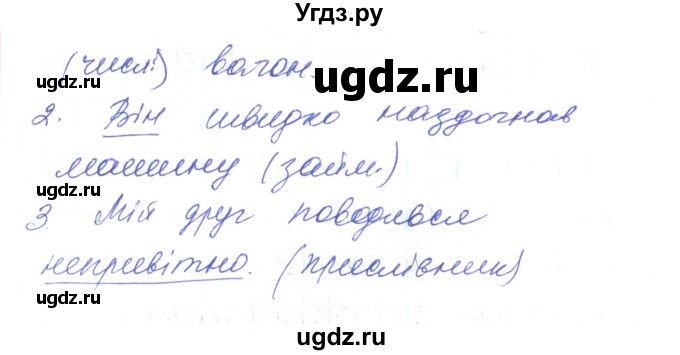 Угдз.ру
(числ.) вагон.
ugdz.ru
ugdz.ru ugdz.ru
2. Він швидко наздогнав
машину (займ.)
ugdz.ru ugdz.ru
3. Мій друг поводився
непривітно. (прислівник)
ugdz.ru ugdz.ru